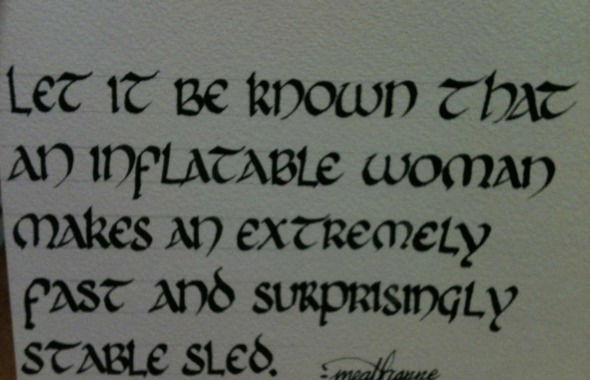 Let it be known that
an inflatable woman
makes an extremely
fast and surprisingly
stable sled.